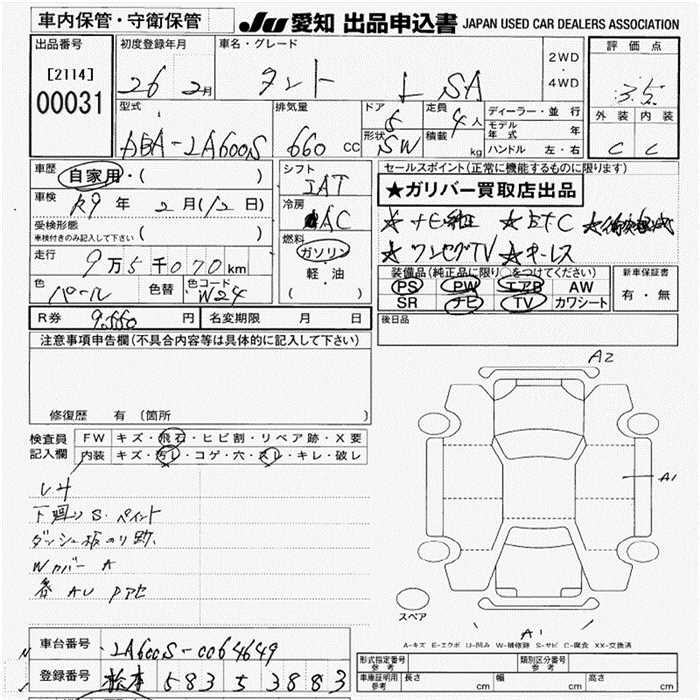 車内保管・守衛保管
JU 愛知 出品申込書 JAPAN USED CAR DEALERS ASSOCIATION
出品番号
[2114]
00031
初度登録年月
26 2月
車名・グレード
タント L SA
2WD
・
4WD
評価点
3.5
外装 内装
C C
型式
ABA-LA600S
排気量
660 cc
ドア
5
形状
SW
定員
4人
積載 kg
ディーラー・並行
モデル年式 年
ハンドル 左・右
車歴
自家用・( )
車検
R9年 2月(12日)
受検形態
車検付きのみ記入して下さい ( )
走行
9万5千070km
色
パール
色替
色コード
W24
シフト
IAT
冷房
AC
燃料
ガソリン
・
軽・油
( )
セールスポイント(正常に機能するものに限ります)
★ガリバー買取店出品
★ナビ純正 ★ETC ★衝突軽減
★ワンセグTV ★キーレス
装備品(純正品に限り○をつけてください)
PS PW エアB AW
SR ナビ TV カワシート
新車保証書
有・無
R券 9,660円
名変期限 月 日
後日品
注意事項申告欄(不具合内容等は具体的に記入して下さい)
修復歴 有 〔箇所
検査員
記入欄
FW キズ・飛石・ヒビ割・リペア跡・X要
内装 キズ・汚レ・コゲ・穴・スレ・キレ・破レ
レ4
下廻りS・ペイント
ダッシュ板のり跡、
Wカバー A
各 AU Pアセ
A2
A1
A1
スペア
A-キズ E-エクボ U-凹み W-補修跡 S-サビ C-腐食 XX-交換済
車台番号
LA600S-0064649
登録番号
松本 583 5 3883
形式指定番号
参考
類別区分番号
参考
車庫証明用
参考
長さ cm 幅 cm 高さ cm